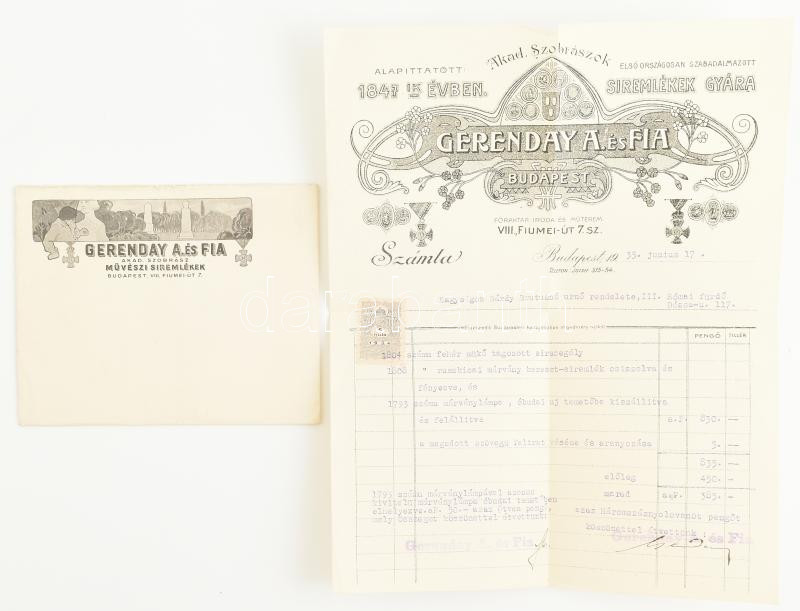 GERENDAY A. ÉS FIA
AKAD. SZOBRÁSZ
MŰVÉSZI SIREMLÉKEK
BUDAPEST, VIII, FIUMEI-ÚT 7.
Akad. Szobrászok
ALAPITTATOTT:
1847 IK ÉVBEN.
ELSŐ ORSZÁGOSAN SZABADALMAZOTT
SIREMLÉKEK GYÁRA
GERENDAY A. ÉS FIA
BUDAPEST.
FŐRAKTÁR IRODA ÉS MŰTEREM
VIII., FIUMEI-ÚT 7. SZ.
Számla
Budapest, 19 35. junius 17.
úrnő rendelete, III. Római fürdő
117.
PENGŐ TILLÉR
1804 számu fehér műkő tagozott sirszegély
1808 " ruskicai márvány kereszt-siremlék csiszolva és
fényezve, és
1793 számu márványlámpa, óbudai uj temetőbe kiszállitva
és felállitva a.P. 830. —
a megadott szövegü felirat vésése és aranyozása 5. —
835. —
előleg 450. —
marad a.P. 385. —
1793 számu márványlámpával azonos
kivitelü márványlámpa óbudai temetőben
elhelyezve. a P. 50.— azaz ötven pengő,
mely összeget köszönettel átvettünk.
azaz Háromszáznyolcvanöt pengőt
köszönettel átvettünk!
Gerenday A. és Fia
Gerenday A. és Fia
darabanth